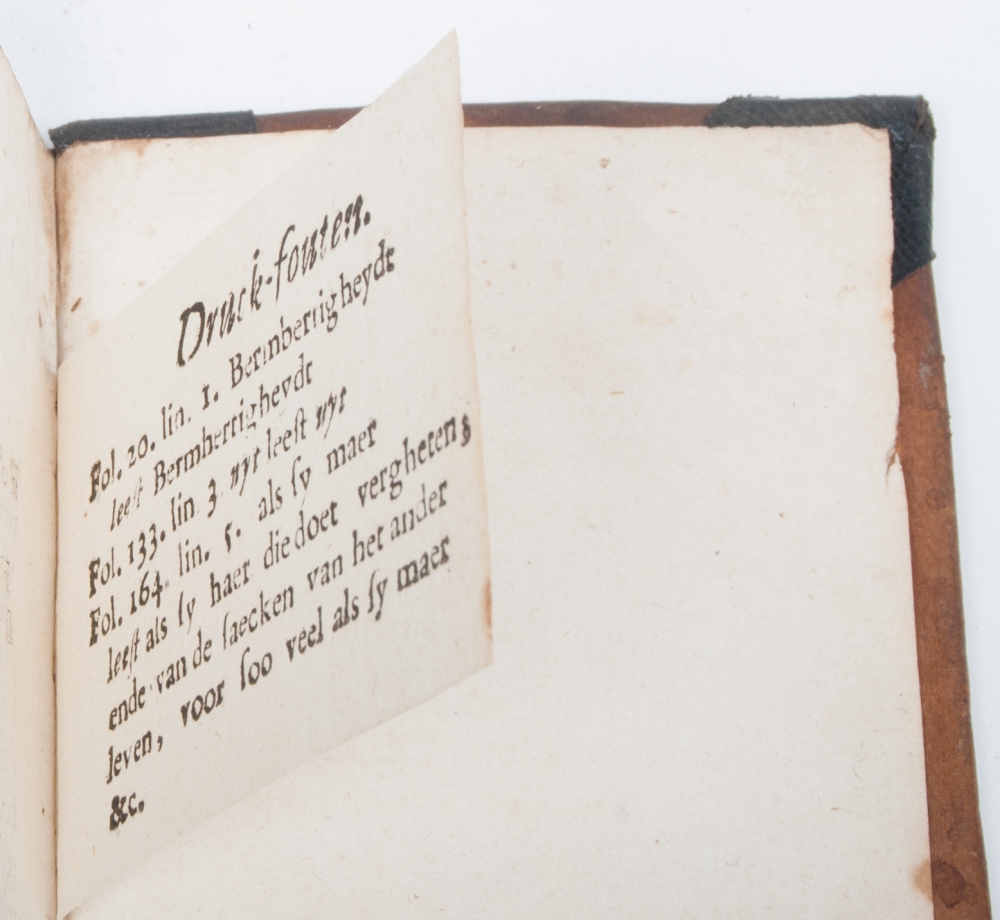 Druck-fouten.
Fol. 20. lin. 1. Bermbertigheydt
leest Bermhertigheydt
Fol. 133. lin. 3. nyt leeſt uyt
Fol. 164. lin. 5. als ſy maer
leeſt als ſy haer die doet vergheten;
ende van de ſaecken van het ander
leven, voor ſoo veel als ſy maer
&c.